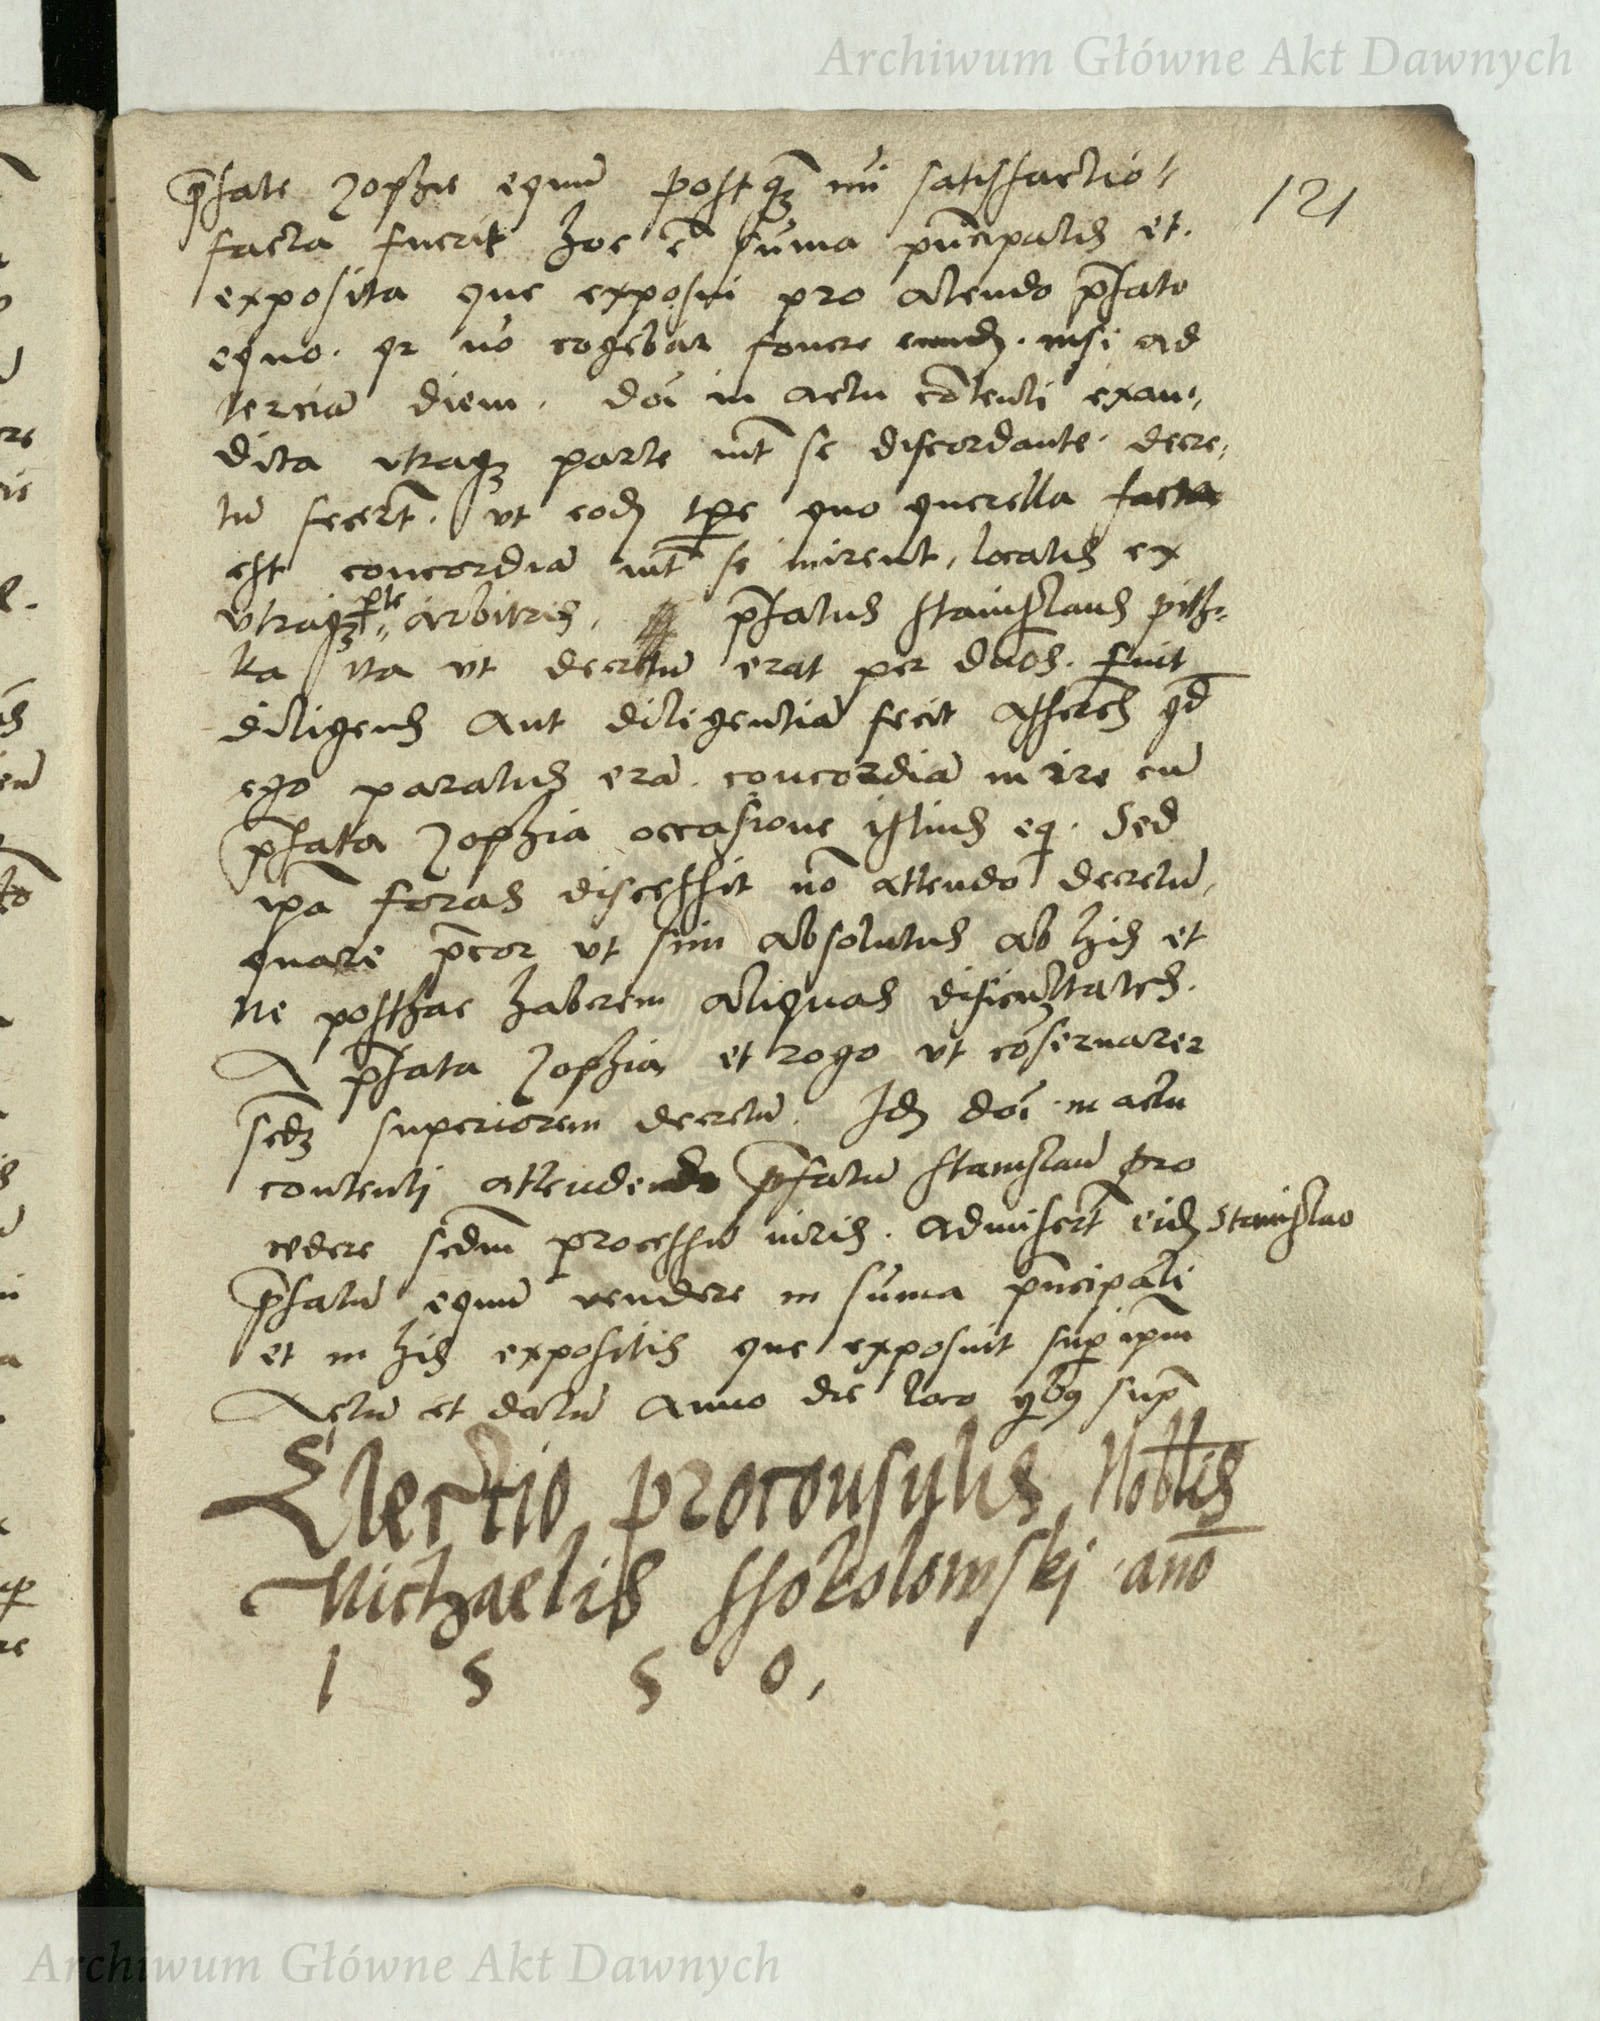 Archiwum Główne Akt Dawnych
121
p̄fate Zophie equū postqȝ mī satisfactio
facta fuerit hoc ē sūma prīcipalis et
exposita que exposui pro alendo p̄fato
equo. qr nō cogebar fouere eundȝ. nisi ad
terciā diem. doī in actu cōtenti exau-
dita utraqȝ parte int̄ se discordante. decre-
tū fecert̄. ut eodȝ tp̄e quo querella facta
est concordiā int̄ se inirent, locatis ex
utraqȝ pte arbitris. p̄fatus Stanislaus pith-
ka ita ut decretū erat per dnōs. fuit
diligens aut diligentiā fecit asserēs qd̄
ego paratus erā concordiā in ire cū
p̄fata Zophia occasione istius eq. Sed
ipā foras discessit nō attendēdo decretū,
quare p̄cor ut sim absolutus ab his et
ne posthac haberem aliquas dificultates.
A p̄fata Zophia et rogo ut cōseruarer
scdȝ superiorem decretū. Idȝ doī in actu
contenti attendendo p̄fatū Stanislaū pro
cedere scdm̄ processū iuris. admisert̄ eidȝ Stanislao
p̄fatū equū vendere in sūma prīcipali
et in his expositis que exposuit sup ipm̄
Actū et datū anno die loco qbȝ sup̄
Electio proconsulis Nobłis
Michaelis Ssokolowskj anō
1 5 5 0,
Archiwum Główne Akt Dawnych